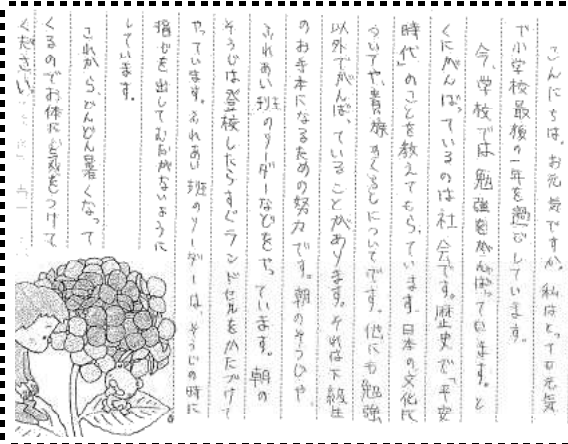 こんにちは。お元気ですか。私はとっても元気
で小学校最後の一年を過ごしています。
今、学校では勉強をがんばっています。と
くにがんばっているのは社会です。歴史で「平安
時代」のことを教えてもらっています。日本の文化に
ついてや貴族のくらしについてです。他にも勉強
以外でがんばっていることがあります。それは下級生
のお手本になるための努力です。朝のそうじや、
ふれあい班のリーダーなどをやっています。朝の
そうじは登校したらすぐランドセルをかたづけて
やっています。ふれあい班のリーダーは、そうじの時に
指じを出してむだがないように
しています。
これから、どんどん暑くなって
くるのでお体にお気をつけて
ください。